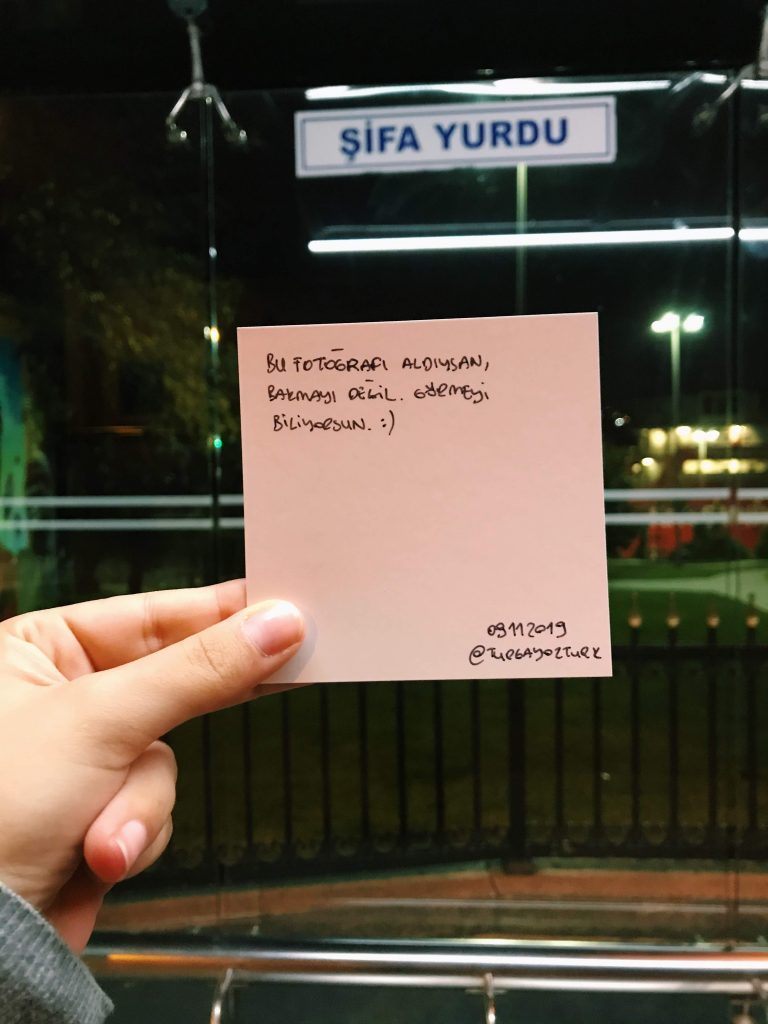 ŞİFA YURDU
BU FOTOĞRAFI ALDIYSAN,
BAKMAYI DEĞİL. GÖRMEYİ
BİLİYORSUN. :)
09112019
@TURGAYOZTURK